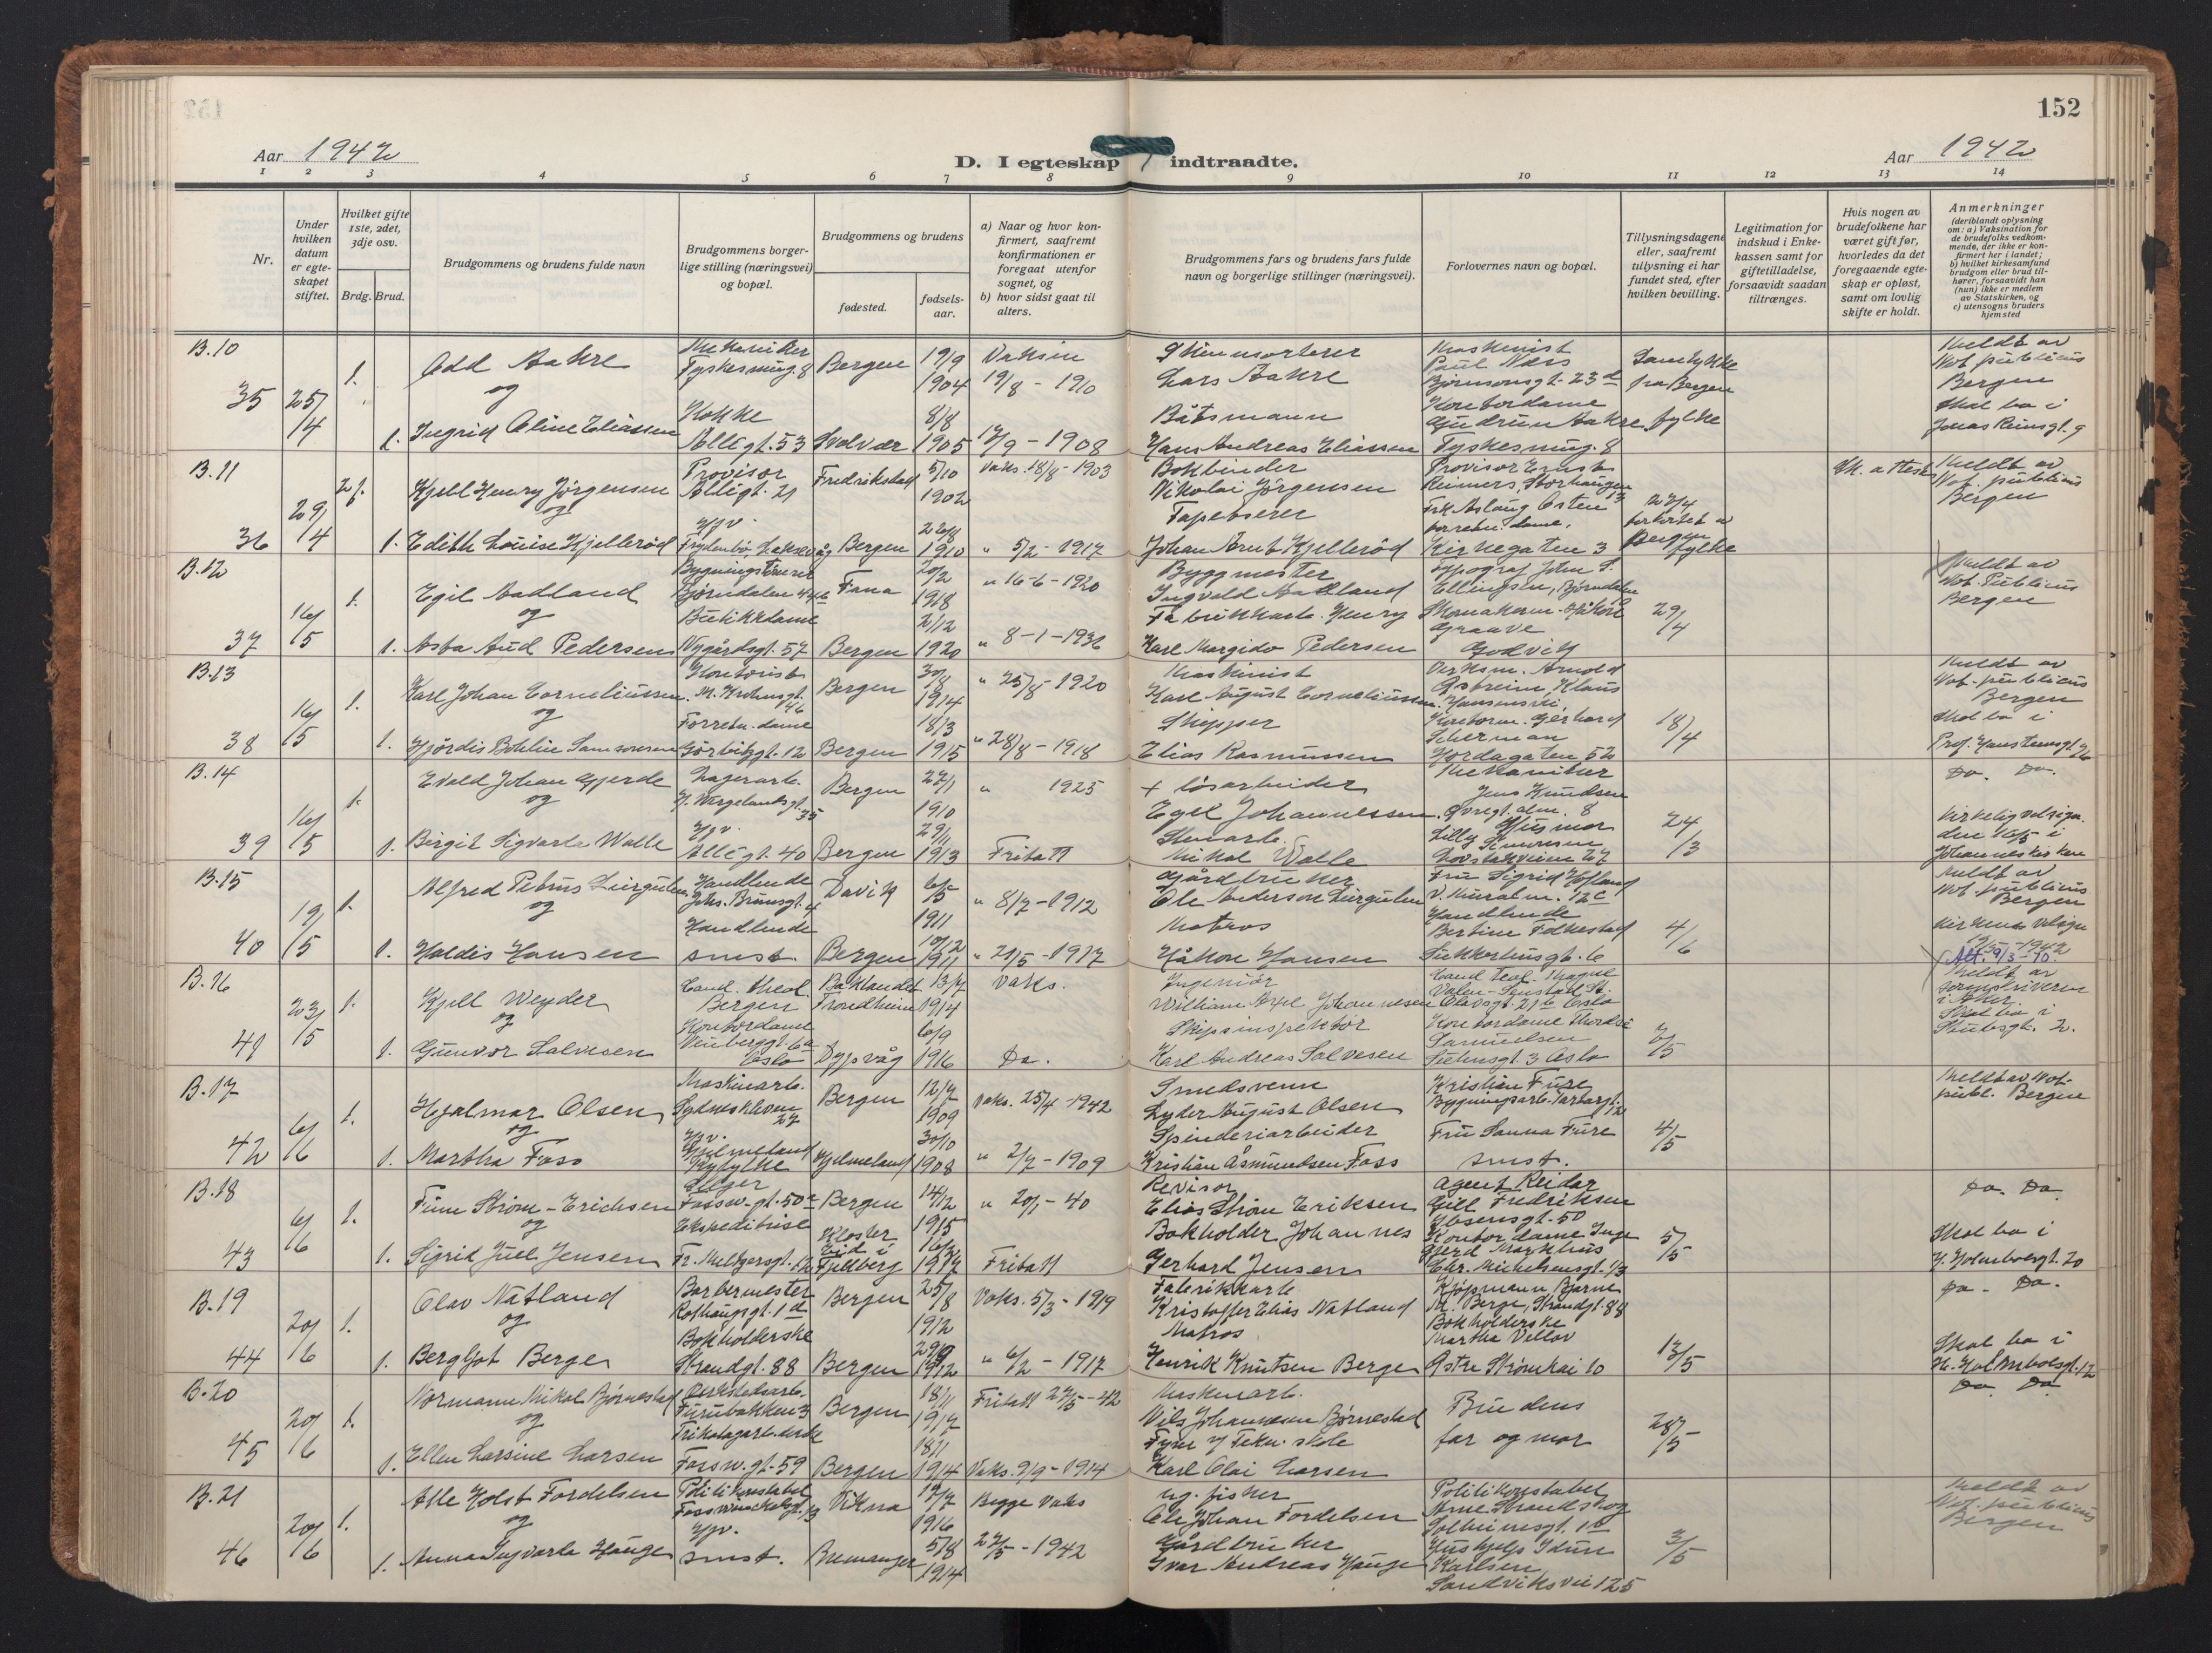 152
Aar 1942
D. I egteskap indtraadte.
Aar 1942
1 2 3 4 5 6 7 8 9 10 11 12 13 14
Nr.
Under hvilken datum er egteskapet stiftet.
Hvilket gifte 1ste, 2det, 3dje osv.
Brdg. Brud.
Brudgommens og brudens fulde navn
Brudgommens borgerlige stilling (næringsvei) og bopæl.
Brudgommens og brudens
fødested.
fødsels-aar.
a) Naar og hvor konfirmert, saafremt konfirmationen er foregaat utenfor sognet, og
b) hvor sidst gaat til alters.
Brudgommens fars og brudens fars fulde navn og borgerlige stillinger (næringsvei).
Forlovernes navn og bopæl.
Tillysningsdagene eller, saafremt tillysning ei har fundet sted, efter hvilken bevilling.
Legitimation for indskud i Enkekassen samt for giftetilladelse, forsaavidt saadan tiltrænges.
Hvis nogen av brudefolkene har været gift før, hvorledes da det foregaaende egteskap er opløst, samt om lovlig skifte er holdt.
Anmerkninger
(deriblandt oplysning om: a) Vaksination for de brudefolks vedkommende, der ikke er konfirmert her i landet; b) hvilket kirkesamfund brudgom eller brud tilhører, forsaavidt han (hun) ikke er medlem av Statskirken, og c) utensogns bruders hjemsted
B.10
35 25/4 1. Odd Aakre Mekaniker Bergen 19/9 1904 Vaksin 19/8 - 1910
Lars Aakre
Maskinist Paul Næss Bjørnsonsgt. 23 d
fra Bergen fylke
Meldt av Not. publicus Bergen
og
1. Ingrid Oline Eliassen Kokke Allégt. 53 Svolvær 8/8 1905 - 1908
Båtsmann Hans Andreas Eliassen
Kontordame Gudrun Aakre
Skal bo i
B.11
36 29/4 2. Kjell Henry Jørgensen Provisor Allégt. 21 Fredrikstad 5/10 1902 Vaks. 18/8 - 1903
Bokbinder Nikolai Jørgensen
Provisor Ernst Reimers, Storhaugen 13
Meldt av Not. publicus Bergen
og
1. Edith Louise Kjellerød Hgv. Frydenbø, Laksevåg Bergen 1910 " 5/2 - 1917
Tapetserer Johan Arnt Kjellerød
Frk Aslaug Osten Kirkegaten 3
Bergen fylke
B.12
37 16/5 1. Egil Aadland Fana 20/2 1918 " 16-6-1920
Byggmester Ingvald Aadland
Typograf John S. Ellingsen, Bjørndalen
29/4
Meldt av Not. Publicus Bergen
og
1. Asta Aud Pedersen Butikkdame Nygårdsgt. 57 Bergen 2/12 1920 " 8-1-1936
Karl Margido Pedersen
Godvik
B.13
38 16/5 1. Karl Johan Corneliussen Kontorist M. Krohnsgt. 46 Bergen 30/8 1914 " 25/8 - 1920
Maskinist Karl August Corneliussen
18/4
Meldt av Not. publicus Bergen
og
1. Hjørdis Bohlin Samsonsen Forretn. dame Bergen 18/3 1915 " 28/8 - 1918
Skipper Elias Rasmussen
Gerhard Scherman Hordagaten 52
Skal bo i
B.14
39 16/5 1. Evald Johan Gjerde Lagerarb. H. Wergelandsgt. 35 Bergen 27/1 1910 " 1925
+ løsarbeider Egel Johannessen
Mekaniker Jens Knudsen Øvregt. alm. 8
24/3
Do. Do.
og
1. Birgit Sigvarda Walle Hgv. Allégt. 40 Bergen 29/11 1913 Fritatt
Mikal Walle
Husmor Lilly Simonsen Løvstakveien 27
Kirkelig velsignden 16/5 i Johanneskirken
B.15
40 19/5 1. Alfred Petrus Liergulen Handlende Joks. Brunsgt. 4 Davik 6/5 1911 " 8/7 - 1912
Gårdbruker Ole Anderson Liergulen
Fru Sigrid Hofland
4/6
Meldt av Not. publicus Bergen
og
1. Haldis Hansen Handlende smst. Bergen 10/12 1911 " 21/5 - 1917
Matros Håkon Hansen
Handlende Bertine Folkestad Sikkerhusgt. 6
B.16
41 23/5 1. Kjell Weyder Cand. theol. Bergen Baklandet Trondheim 13/7 1914 Vaks.
Ingeniør William Axel Johannesen
Cand. teol. Olavsgt. 21 b Oslo
2/5
Meldt av Sorenskriveren i Aker.
og
1. Gunvor Salvesen Kontordame Vinberggt. 6a Oslo Dypvåg 6/9 1916 Do.
Skipsinspektør Karl Andreas Salvesen
Kontordame Thordis Samuelsen Oslo
Skal bo i Stubsgt. 2.
B.17
42 6/6 1. Hjalmar Olsen Maskinarb. Sydneskleven 27 Bergen 12/7 1909 Vaks. 25/4 - 1942
Smedsvenn Lyder August Olsen
Kristian Fure Bygningsarb.
4/5
Meldt av Not. publ. Bergen
og
1. Martha Foss Hgv. Hjelmeland Ryfylke Hjelmeland 30/10 1908 " 2/7 - 1909
Spinderiarbeider Kristian Åsmundsen Foss
Fru Sanna Fure smst.
B.18
43 6/6 1. Finn Strøm-Erichsen Selger Fossw.gt. 50 a Bergen 14/12 1915 " 20/1 - 40
Revisor Elias Strøm Eriksen
Agent Reidar Gill Fredriksen Ibsensgt. 50
5/5
Do. Do.
og
1. Sigrid Juel Jensen Ekspeditrise Fr. Meltzersgt. 12 Kloster Eid i Fjellberg 1917 Fritatt
Bokholder Johannes Gerhard Jensen
Kontordame Inge Gerd Markhus Chr. Michelsensgt. 1/3
Skal bo i
B.19
44 20/6 1. Olav Natland Barbermester Rothaugsgt. 1 d Bergen 25/8 1912 Vaks. 5/3 - 1919
Fabrikkarb. Kristoffer Elias Natland
Kjøpmann Bjarne M. Berge, Strandgt. 88
13/5
Do. Do.
og
1. Bergljot Berge Bokholderske Strandgt. 88 Bergen 1912 " 6/2 - 1917
Matros Henrik Knutsen Berge
Bokholderske Martha Vellov Østre Strømkai 10
Skal bo i
B.20
45 20/6 1. Normann Mikal Bjørnestad Verkstedsarb. Furubakken 3 Bergen 18/11 1917 Fritatt 27/5 - 42
Maskinarb. Nils Johannesen Bjørnestad
Brudens far og mor
28/5
Do. Do.
og
1. Ellen Larsine Larsen Trikotagearb.erske Fossw.gt. 59 Bergen 18/1 1914 Vaks. 9/9 - 1914
Fyrb. v/ Tekn. skole Karl Olai Larsen
B.21
46 20/6 1. Alle Holst Fordelsen Politikonstabel Vikna 17/7 1916 Begge Vaks
ug. fisker Ole Johan Fordelsen
Politikonstabel Arne Strandskog Solheimsgt. 1 b
3/5
Meldt av Not. publicus Bergen
og
1. Anna Ingvarda Hauge Hgv. smst. Bremanger 5/8 1914 27/5 - 1942
Gårdbruker Ivar Andreas Hauge
Hushjelp Idun Karlsen Sandviksvei 125